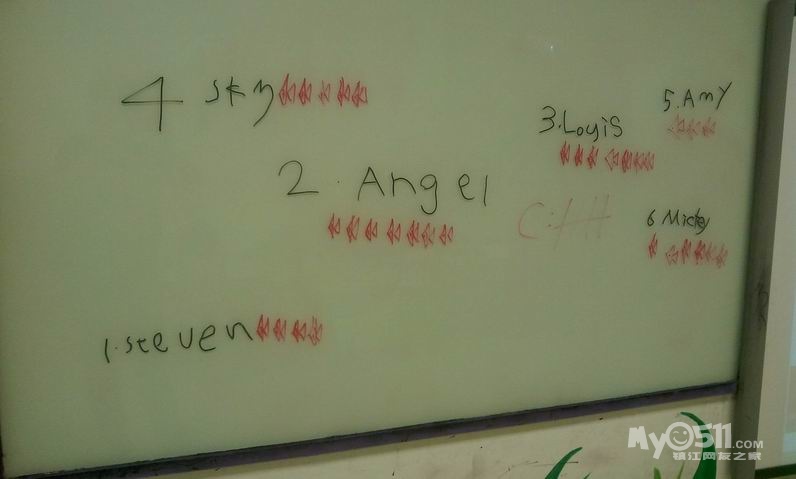 4 Sky
5.Amy
3.Loyis
2. Angel
6 Micky
1.steven
MyO511.COM
镇江网友之家